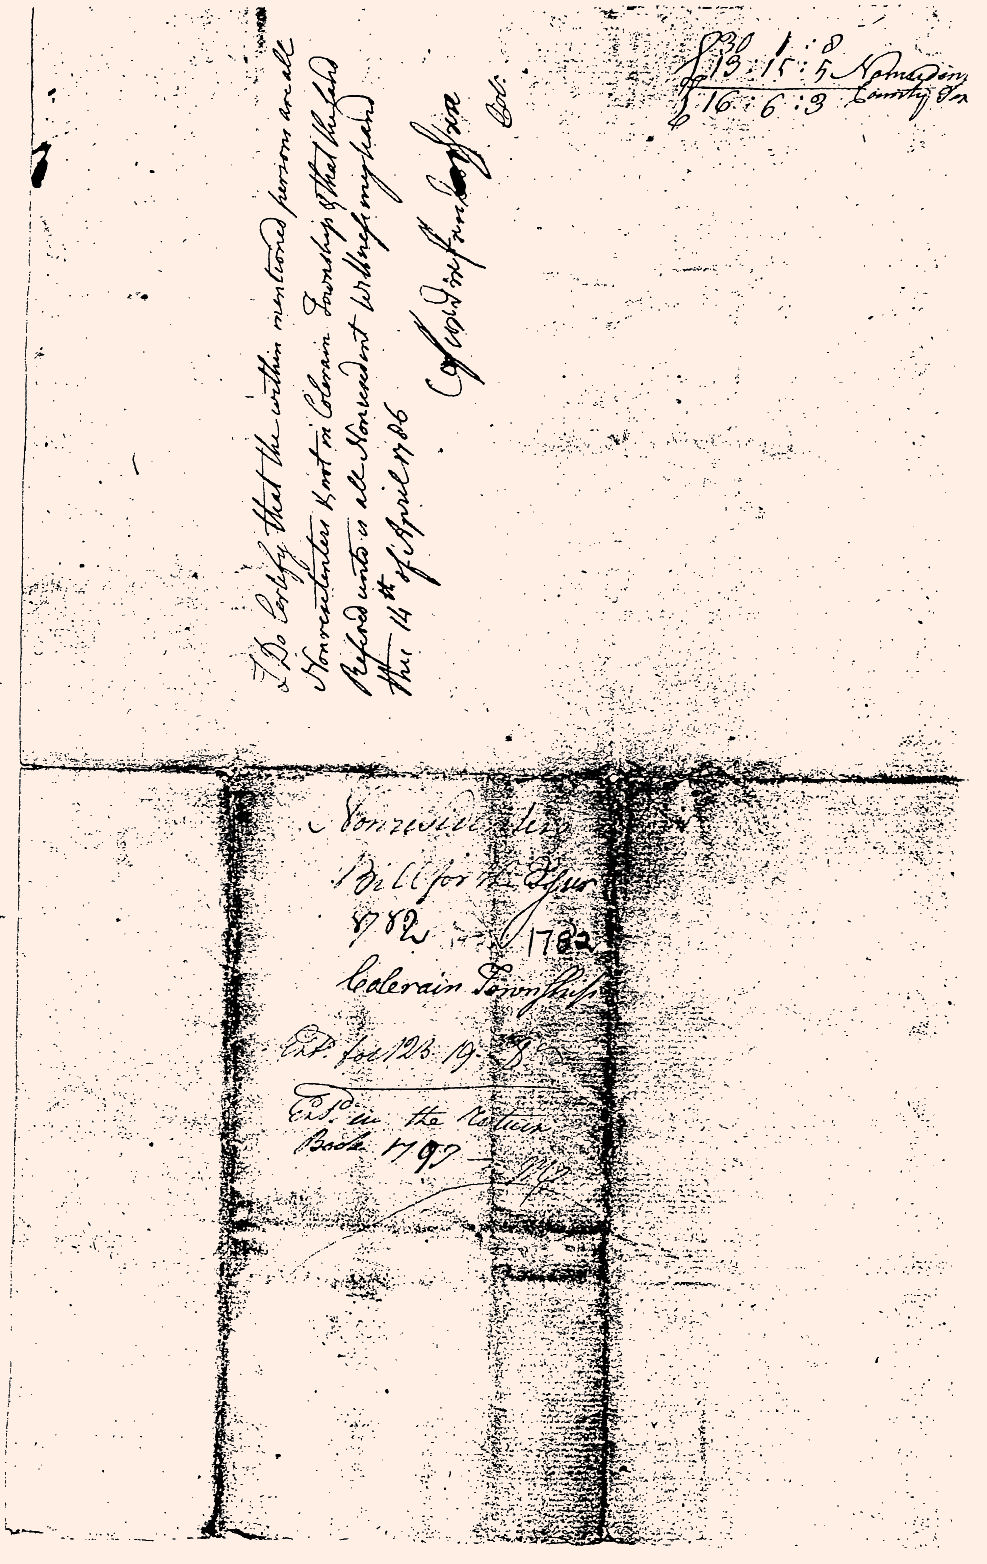 30 1 : 8
13 : 15 : 5
16 : 6 : 3 County
I Do Certefy that the within mentioned persons are all
Nonresidenters & not in Colerain Township & that the land
Refered unto is all Nonresident Witness my hand
this 14th of April 1786
Col.
Nonresidenters
Bill for the Year
1782 1782
Colerain Township
Entd. for 123 19 8
Entd. in the Return
Book 1797